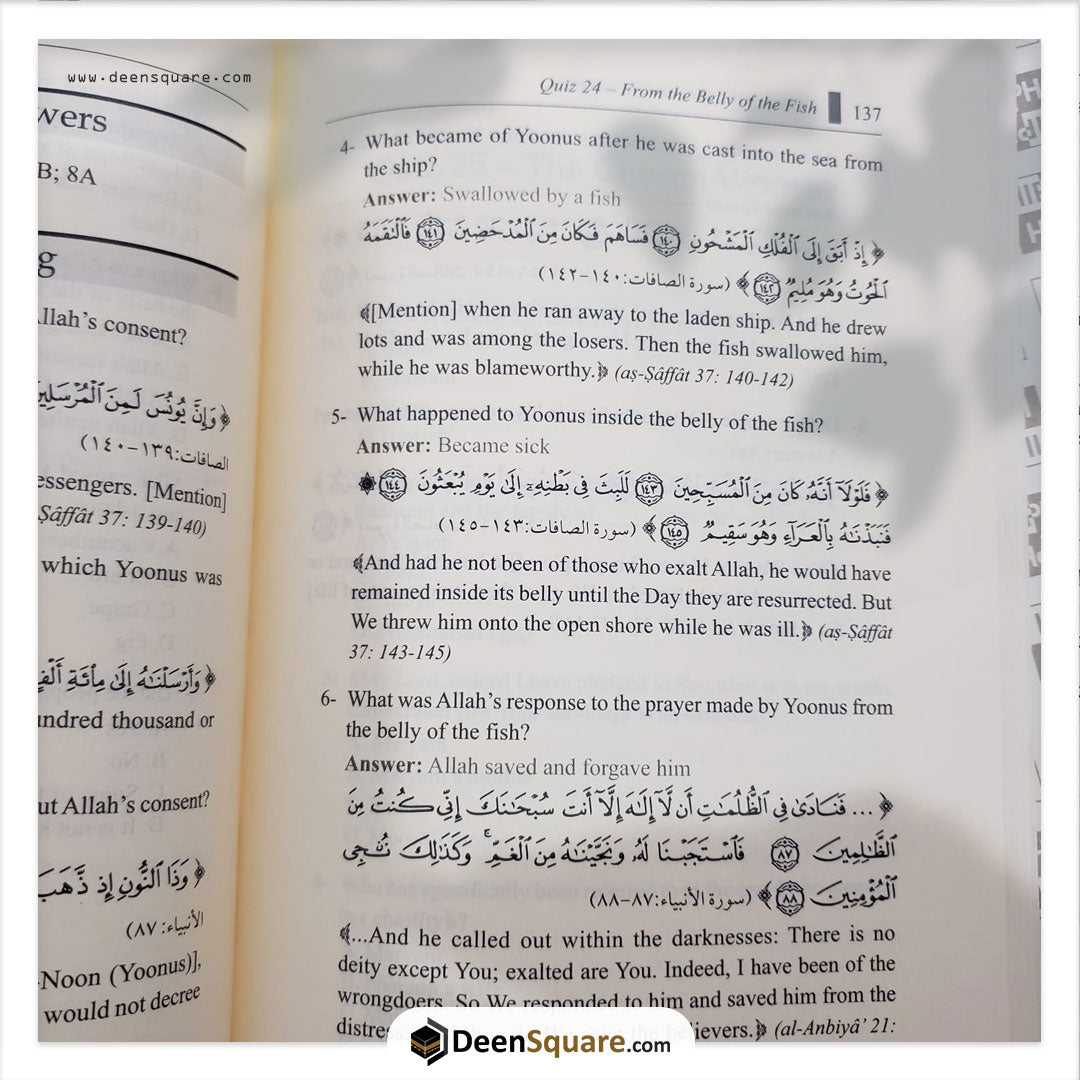 www.deensquare.com
wers
B; 8A
g
Allah's consent?
﴿ وَإِنَّ يُونُسَ لَمِنَ الْمُرْسَلِينَ
الصافات:١٣٩-١٤٠)
essengers. [Mention]
Ṣâffât 37: 139-140)
which Yoonus was
﴿ وَأَرْسَلْنَاهُ إِلَىٰ مِائَةِ أَلْفٍ
undred thousand or
ut Allah's consent?
﴿ وَذَا النُّونِ إِذ ذَّهَبَ
الأنبياء: ٨٧)
-Noon (Yoonus)],
would not decree
Quiz 24 – From the Belly of the Fish 137
4- What became of Yoonus after he was cast into the sea from
the ship?
Answer: Swallowed by a fish
﴿ إِذْ أَبَقَ إِلَى الْفُلْكِ الْمَشْحُونِ ١٤٠ فَسَاهَمَ فَكَانَ مِنَ الْمُدْحَضِينَ ١٤١ فَالْتَقَمَهُ
الْحُوتُ وَهُوَ مُلِيمٌ ١٤٢ ﴾ (سورة الصافات: ١٤٠-١٤٢)
﴾[Mention] when he ran away to the laden ship. And he drew
lots and was among the losers. Then the fish swallowed him,
while he was blameworthy.﴿ (aṣ-Ṣâffât 37: 140-142)
5- What happened to Yoonus inside the belly of the fish?
Answer: Became sick
﴿ فَلَوْلَا أَنَّهُ كَانَ مِنَ الْمُسَبِّحِينَ ١٤٣ لَلَبِثَ فِي بَطْنِهِ إِلَىٰ يَوْمِ يُبْعَثُونَ ١٤٤ ۞
فَنَبَذْنَاهُ بِالْعَرَاءِ وَهُوَ سَقِيمٌ ١٤٥ ﴾ (سورة الصافات: ١٤٣-١٤٥)
﴾And had he not been of those who exalt Allah, he would have
remained inside its belly until the Day they are resurrected. But
We threw him onto the open shore while he was ill.﴿ (aṣ-Ṣâffât
37: 143-145)
6- What was Allah's response to the prayer made by Yoonus from
the belly of the fish?
Answer: Allah saved and forgave him
﴿ ... فَنَادَىٰ فِي الظُّلُمَاتِ أَن لَّا إِلَٰهَ إِلَّا أَنتَ سُبْحَانَكَ إِنِّي كُنتُ مِنَ
الظَّالِمِينَ ٨٧ فَاسْتَجَبْنَا لَهُ وَنَجَّيْنَاهُ مِنَ الْغَمِّ ۚ وَكَذَٰلِكَ نُنجِي
الْمُؤْمِنِينَ ٨٨ ﴾ (سورة الأنبياء: ٨٧-٨٨)
﴾...And he called out within the darknesses: There is no
deity except You; exalted are You. Indeed, I have been of the
wrongdoers. So We responded to him and saved him from the
distress believers.﴿ (al-Anbiyâ' 21:
DeenSquare.com